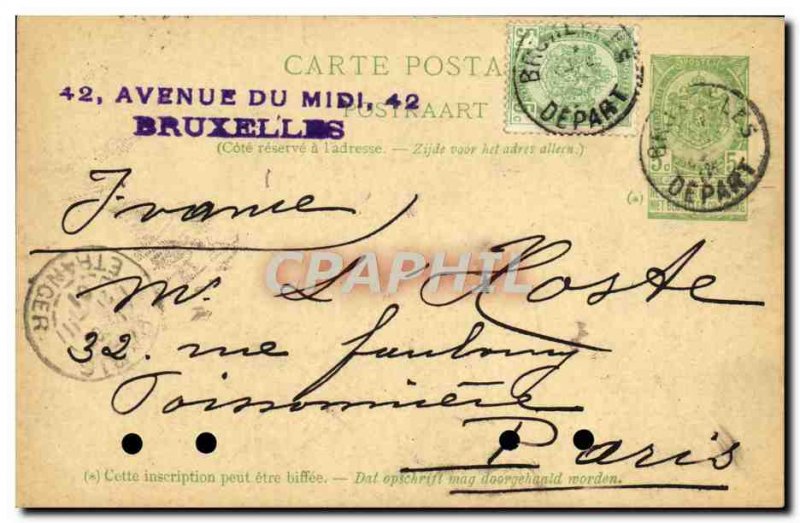 CARTE POSTA
POSTKAART
42, AVENUE DU MIDI, 42
BRUXELLES
(Côté réservé à l'adresse. — Zijde voor het adres alleen.)
BRUXELLES
DEPART
BRUXELLES
DEPART
5c
(*)
France
CPRPHIL
Mr. L. Hoste
32. rue faubourg
Poissonnière
Paris
PARIS
ETRANGER
(*) Cette inscription peut être biffée. — Dat opschrift mag doorgehaald worden.